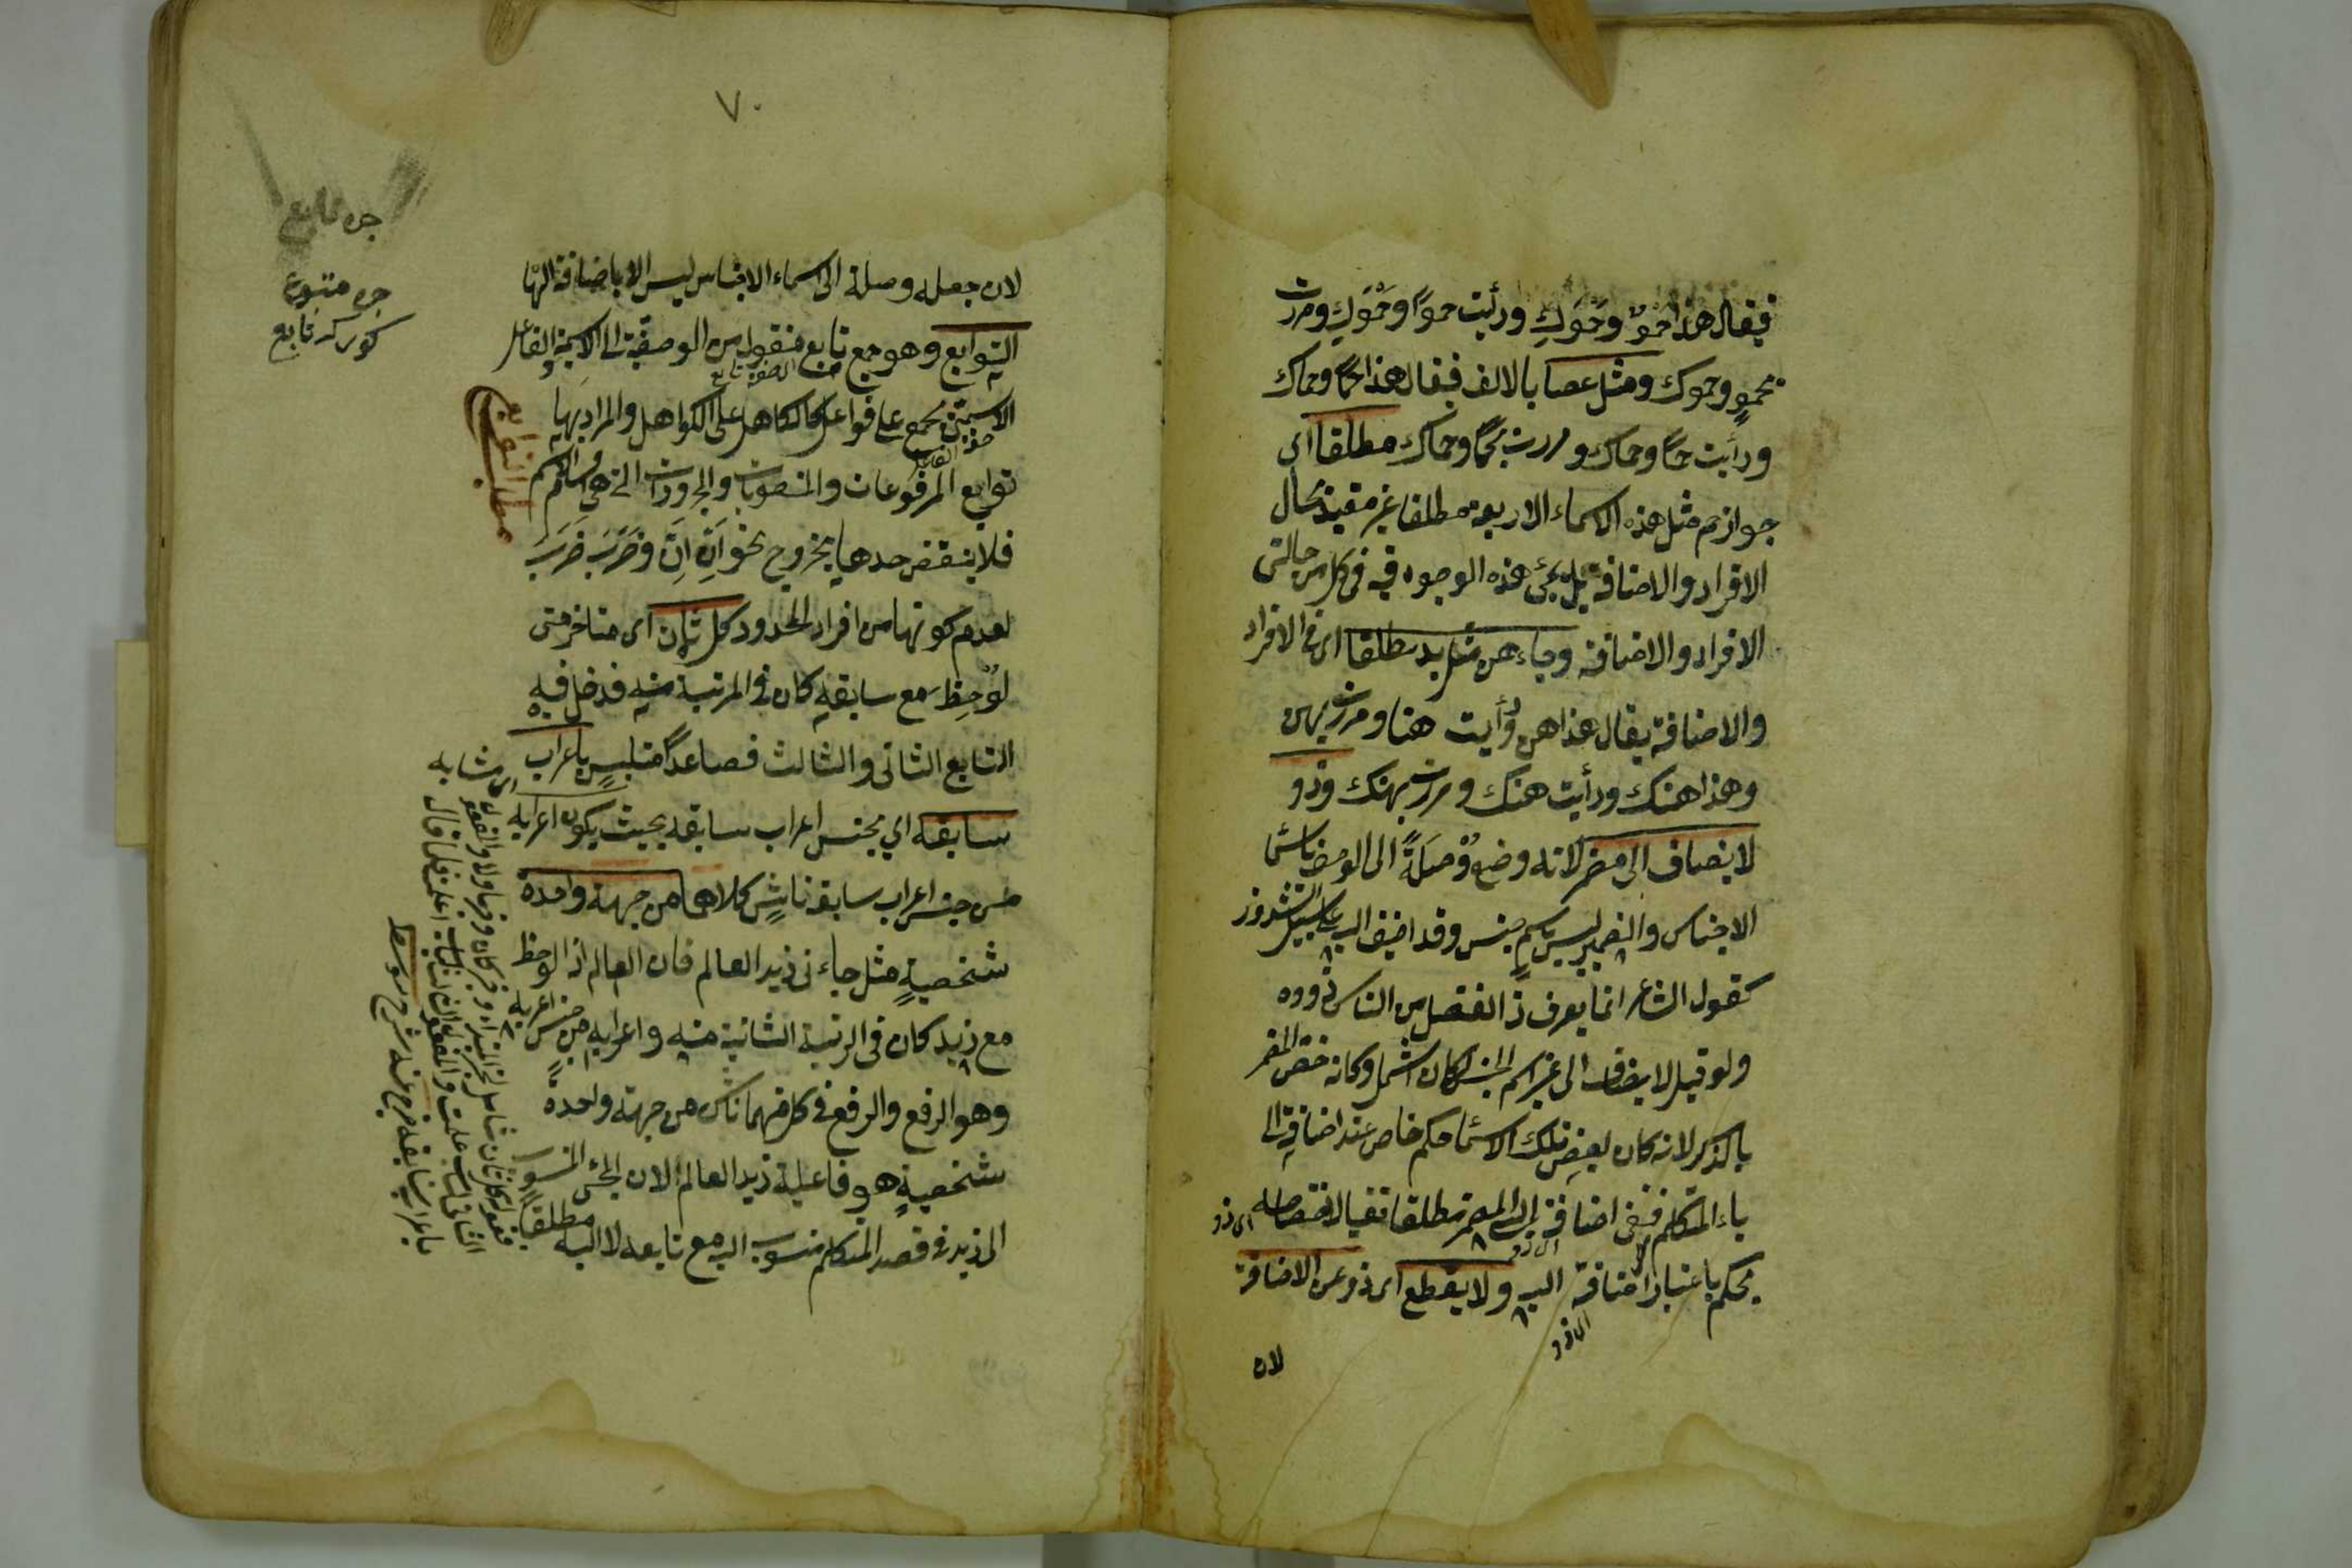 فيقال هذا حموٌ وحَمْوُكِ ورأيت حموًا وحَمْوَكِ ومررت
بحموٍ وحموك ومثل عصا بالالف فيقال هذا حمًا وحماك
ورأيت حمًا وحماك ومررت بحمًا وحماك مطلقا اى
جواز حم مثل هذه الاسماء الاربعة مطلقا غير مقيد بحال
الافراد والاضافة بل يجئ هذه الوجوه فيه فى كل من حالتى
الافراد والاضافة وجاء هن مثل يد مطلقا اى فى الافراد
والاضافة يقال هذا هن ورأيت هنا ومررت بهن
وهذا هنك ورأيت هنك ومررت بهنك وذو
لا يضاف الى مضمر لانه وضع وُصلَةً الى الوصف باسماء
الاجناس والضمير ليس باسم جنس وقد اضيف اليه على سبيل الشذوذ
كقول الشاعر انما يعرف ذا الفضل من الناس ذووه
ولو قيل لا يضاف الى غير اسم الجنس لكان اشمل وكانه خص المضمر
بالذكر لانه كان لبعض تلك الاسماء حكم خاص عند اضافته الى
ياء المتكلم فنفى اضافته الى المضمر مطلقا نفيا لاختصاصه اى ذو
بحكم باعتبار اضافته اليه ولا يقطع اى ذو عن الاضافة
اى ذو
اى ذو
لان
٧٠
لان جعله وصلة الى اسماء الاجناس ليس الا باضافته اليها
التوابع وهو جمع تابع منقول من الوصفية الى الاسمية والفاعل
الاسمى يجمع على فواعل كالكاهل على الكواهل والمراد بها
توابع المرفوعات والمنصوبات والمجرورات التى هى اقسام الاسم
فلا ينتقض حدها بخروج نحو اِنّ اِنّ وضَرَبَ ضَرَبَ
لعدم كونها من افراد المحدود كل ثان اى متاخر متى
لوُحِظ مع سابقه كان فى المرتبة منه فدخل فيه
التابع الثانى والثالث فصاعدًا متلبسٍ باعراب
سابقه اى بجنس اعراب سابقه بحيث يكون اعرابه
من جنس اعراب سابقه ناشٍ كلاهما من جهة واحدة
شخصيةٍ مثل جاءنى زيد العالم فان العالم اذا لوحظ
مع زيد كان فى الرتبة الثانية منه واعرابه من جنس اعرابه
وهو الرفع والرفع فى كل منهما ناش من جهة واحدة
شخصيةٍ هى فاعلية زيد العالم لان المجئ المنسوب
الى زيد فى قصد المتكلم منسوب اليه مع تابعه لا اليه مطلقًا
جزء تابع
جزء متبوع
مطلب التوابع